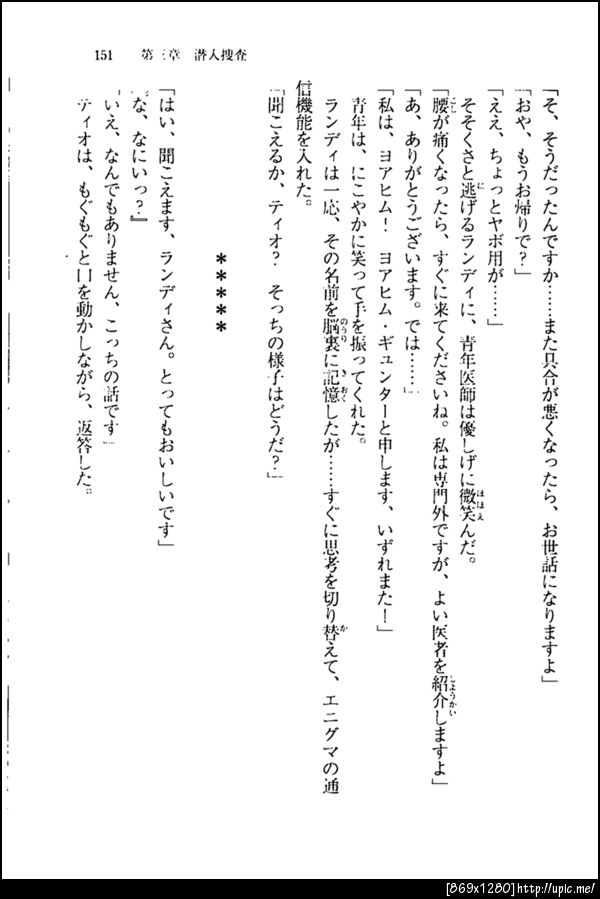 151　第三章　潜入捜査
「そ、そうだったんですか……また具合が悪くなったら、お世話になりますよ」
「おや、もうお帰りで？」
「ええ、ちょっとヤボ用が……」
そそくさと逃げるランディに、青年医師は優しげに微笑んだ。
「腰が痛くなったら、すぐに来てくださいね。私は専門外ですが、よい医者を紹介しますよ」
「あ、ありがとうございます。では……」
「私は、ヨアヒム！　ヨアヒム・ギュンターと申します、いずれまた！」
青年は、にこやかに笑って手を振ってくれた。
ランディは一応、その名前を脳裏に記憶したが……すぐに思考を切り替えて、エニグマの通
信機能を入れた。
「聞こえるか、ティオ？　そっちの様子はどうだ？」
＊＊＊＊＊
「はい、聞こえます、ランディさん。とってもおいしいです」
『な、なにいっ？』
「いえ、なんでもありません、こっちの話です」
ティオは、もぐもぐと口を動かしながら、返答した。
[869x1280]http://upic.me/